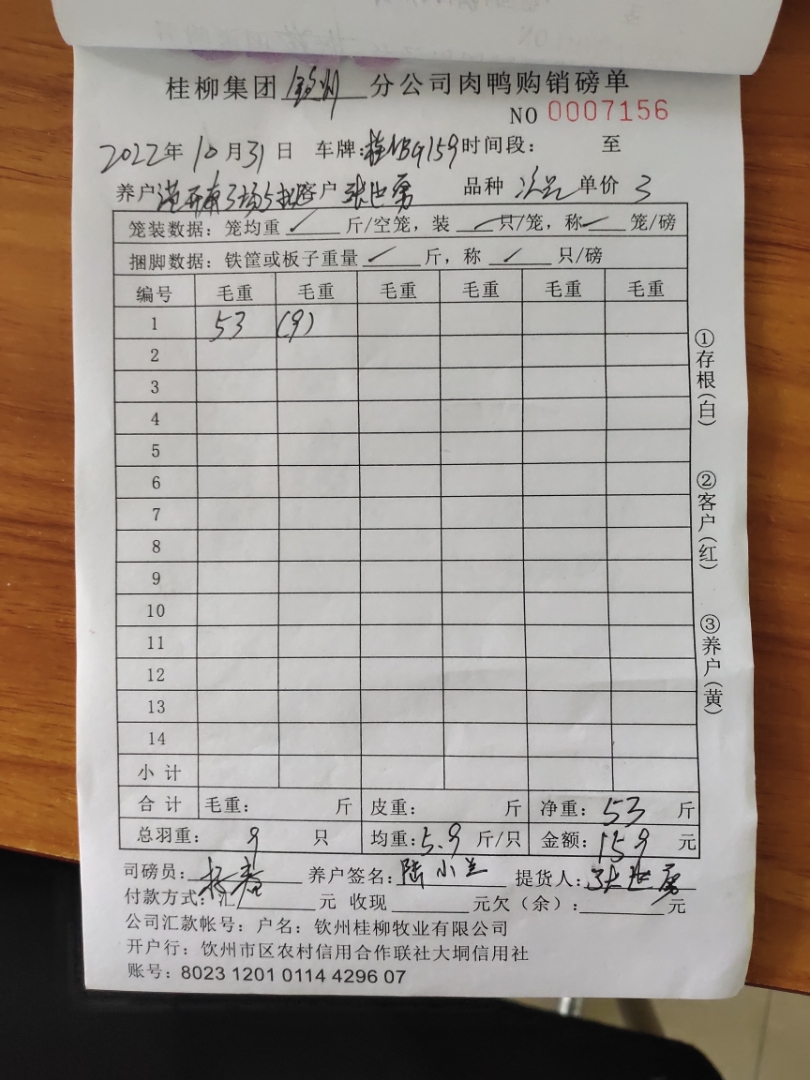 桂柳集团 钦州 分公司肉鸭购销磅单
NO 0007156
2022年10月31日 车牌:桂NBG159时间段: 至
养户 港开南3场5批 客户 张世勇 品种 次品 单价 3
笼装数据:笼均重 ✓ 斤/空笼,装 ✓ 只/笼,称 ✓ 笼/磅
捆脚数据:铁筐或板子重量 ✓ 斤,称 ✓ 只/磅
编号 毛重 毛重 毛重 毛重 毛重 毛重
1 53 (9)
2
3
4
5
6
7
8
9
10
11
12
13
14
小计
合计 毛重: 斤 皮重: 斤 净重:53 斤
总羽重: 9 只 均重:5.9 斤/只 金额:159 元
司磅员: 养户签名:陆小兰 提货人:张世勇
付款方式:汇 元 收现 元欠(余): 元
公司汇款帐号:户名:钦州桂柳牧业有限公司
开户行:钦州市区农村信用合作联社大垌信用社
账号:8023 1201 0114 4296 07
①存根(白)
②客户(红)
③养户(黄)